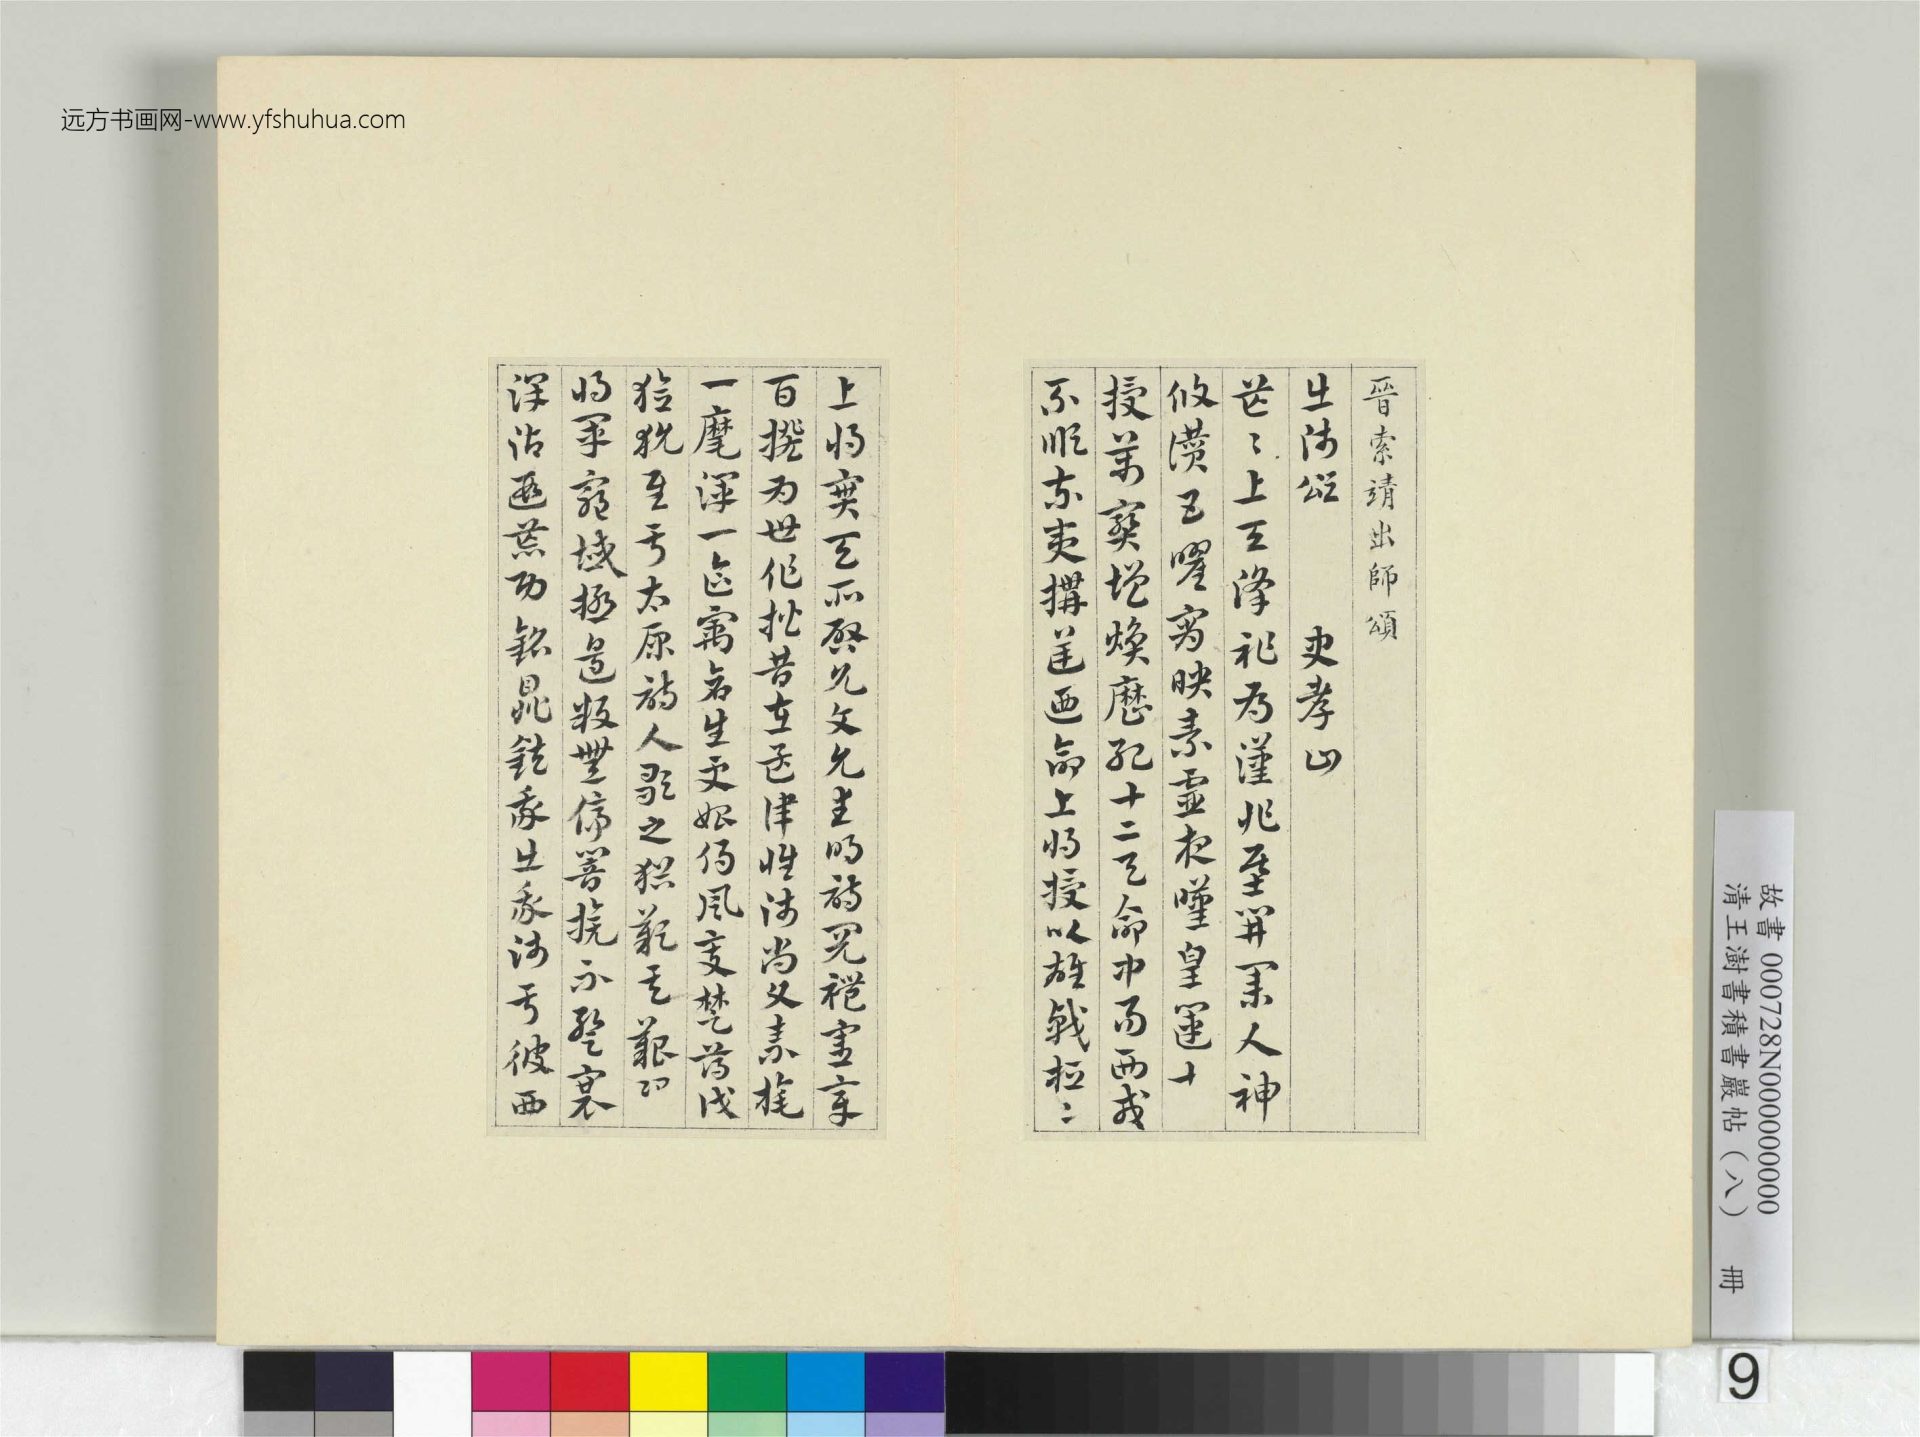 远方书画网-www.yfshuhua.com
晉索靖出師頌
出師頌 史孝山
茫〻上天降祚為漢兆基開業人神
攸讚五曜霄映素靈夜嘆皇運
授萬寶增煥歷紀十二天命中易西戎
不順東夷構逆西命上將授以雄戟桓〻
上將寔天所啓允文允武明詩閱禮憲章
百揆為世作楷昔在孟津惟師尚父素旄
一麾渾一區宇蒼生更始朔風變楚薄伐
獫狁至于太原詩人歌之猶歎其艱
將軍窮域極邊鼓無停響旗不蹔褰
深沾遐荒功銘鼎鉉我出我師于彼西
故書 000728N000000000
清王澍書積書巖帖（八） 冊
9